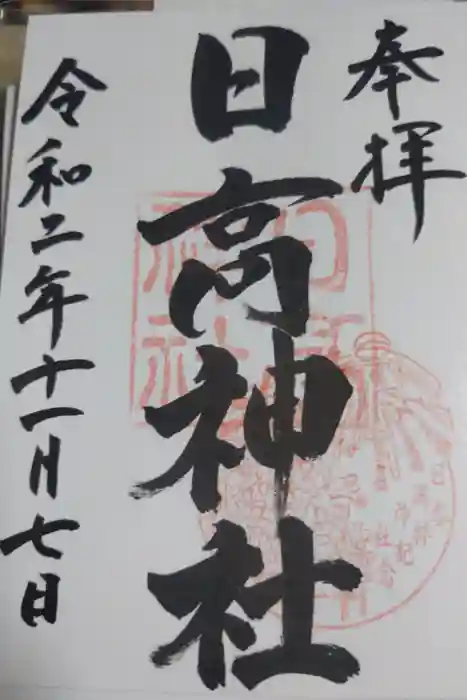 奉拝
日高神社
令和二年十一月七日